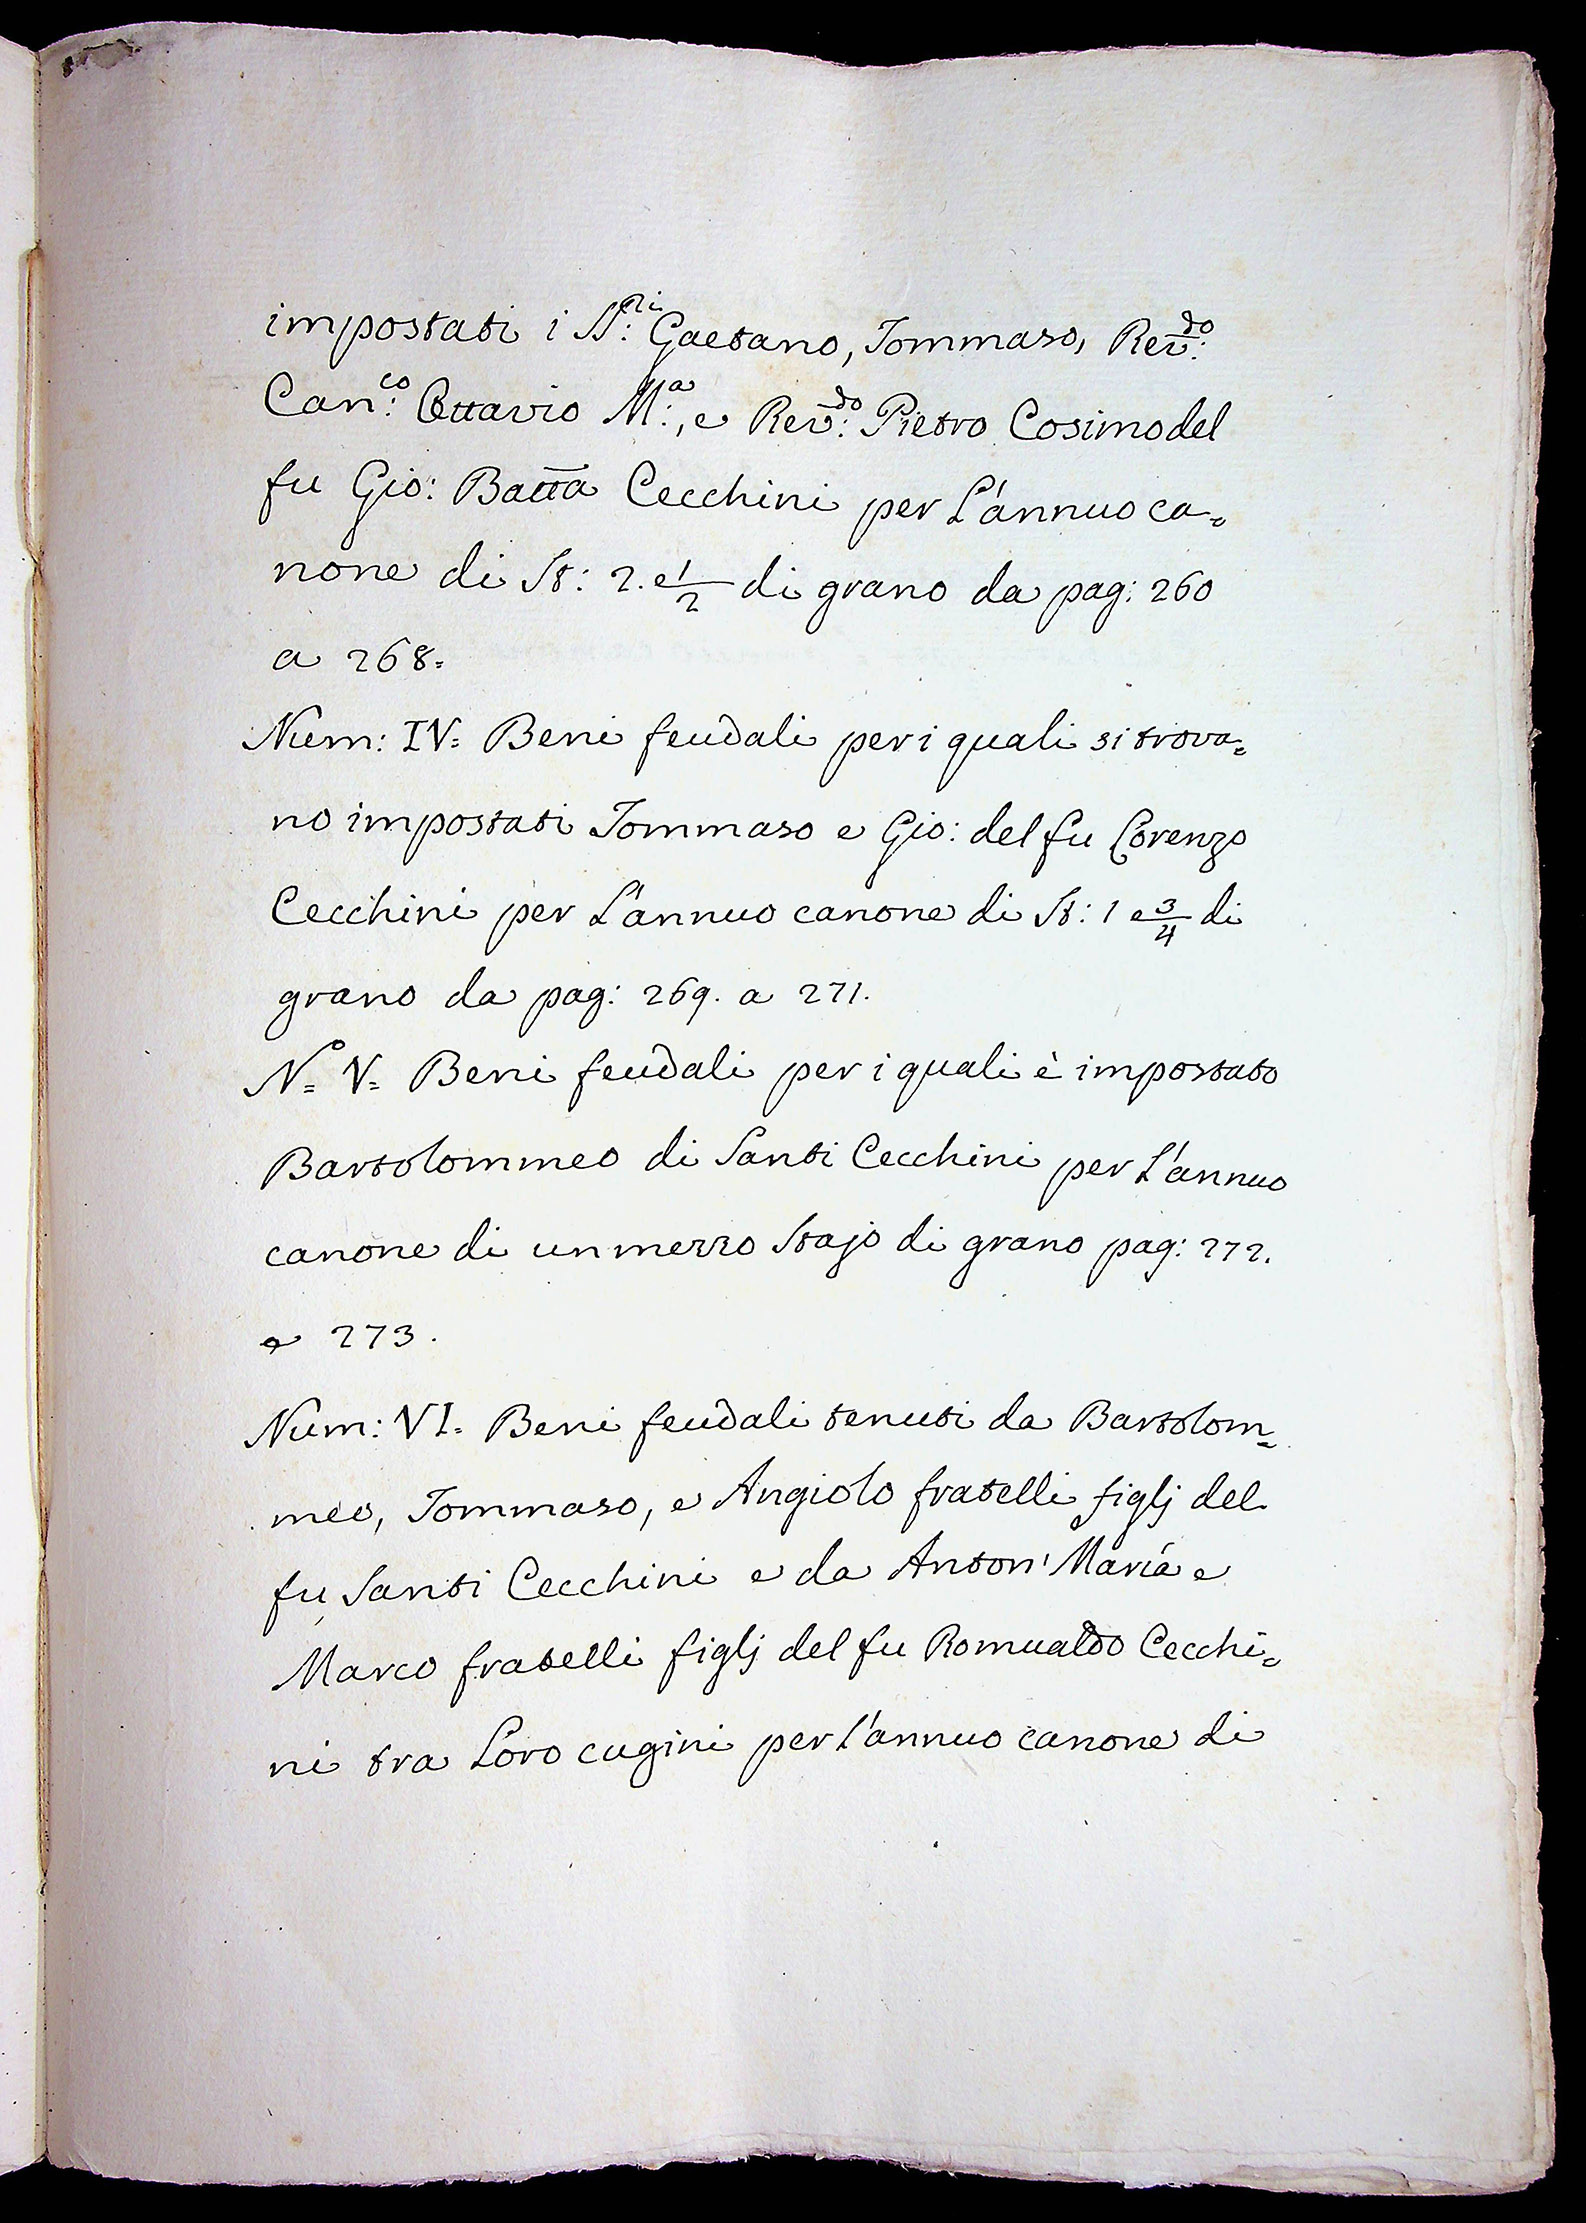 impostati i SS:ri Gaetano, Tommaso, Rev:do
Can:co Ottavio M:a, e Rev:do Pietro Cosimo del
fu Gio: Batta Cecchini per L'annuo ca=
none di St: 2. e 1/2 di grano da pag: 260
a 268=
Num: IV= Beni feudali per i quali si trova=
no impostati Tommaso e Gio: del fu Lorenzo
Cecchini per L'annuo canone di St: 1 e 3/4 di
grano da pag: 269. a 271.
N=o V= Beni feudali per i quali è impostato
Bartolommeo di Santi Cecchini per L'annuo
canone di un mezzo Stajo di grano pag: 272.
e 273.
Num: VI= Beni feudali tenuti da Bartolom=
meo, Tommaso, e Angiolo fratelli figlj del
fu Santi Cecchini e da Anton' Maria e
Marco fratelli figlj del fu Romualdo Cecchi=
ni tra Loro cugini per l'annuo canone di